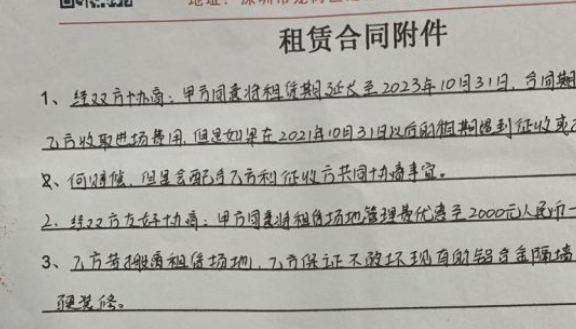 租赁合同附件
1、经双方协商：甲方同意将租赁期延长至2023年10月31日，合同期
乙方收取进场费用，但是如果在2021年10月31日以后的租期遇到征收或
何赔偿，但是会配合乙方和征收方共同协商事宜。
2、经双方友好协商：甲方同意将租赁场地管理费优惠至2000元人民币一
3、乙方若搬离租赁场地，乙方保证不破坏现有的铝合金隔墙
硬装修。